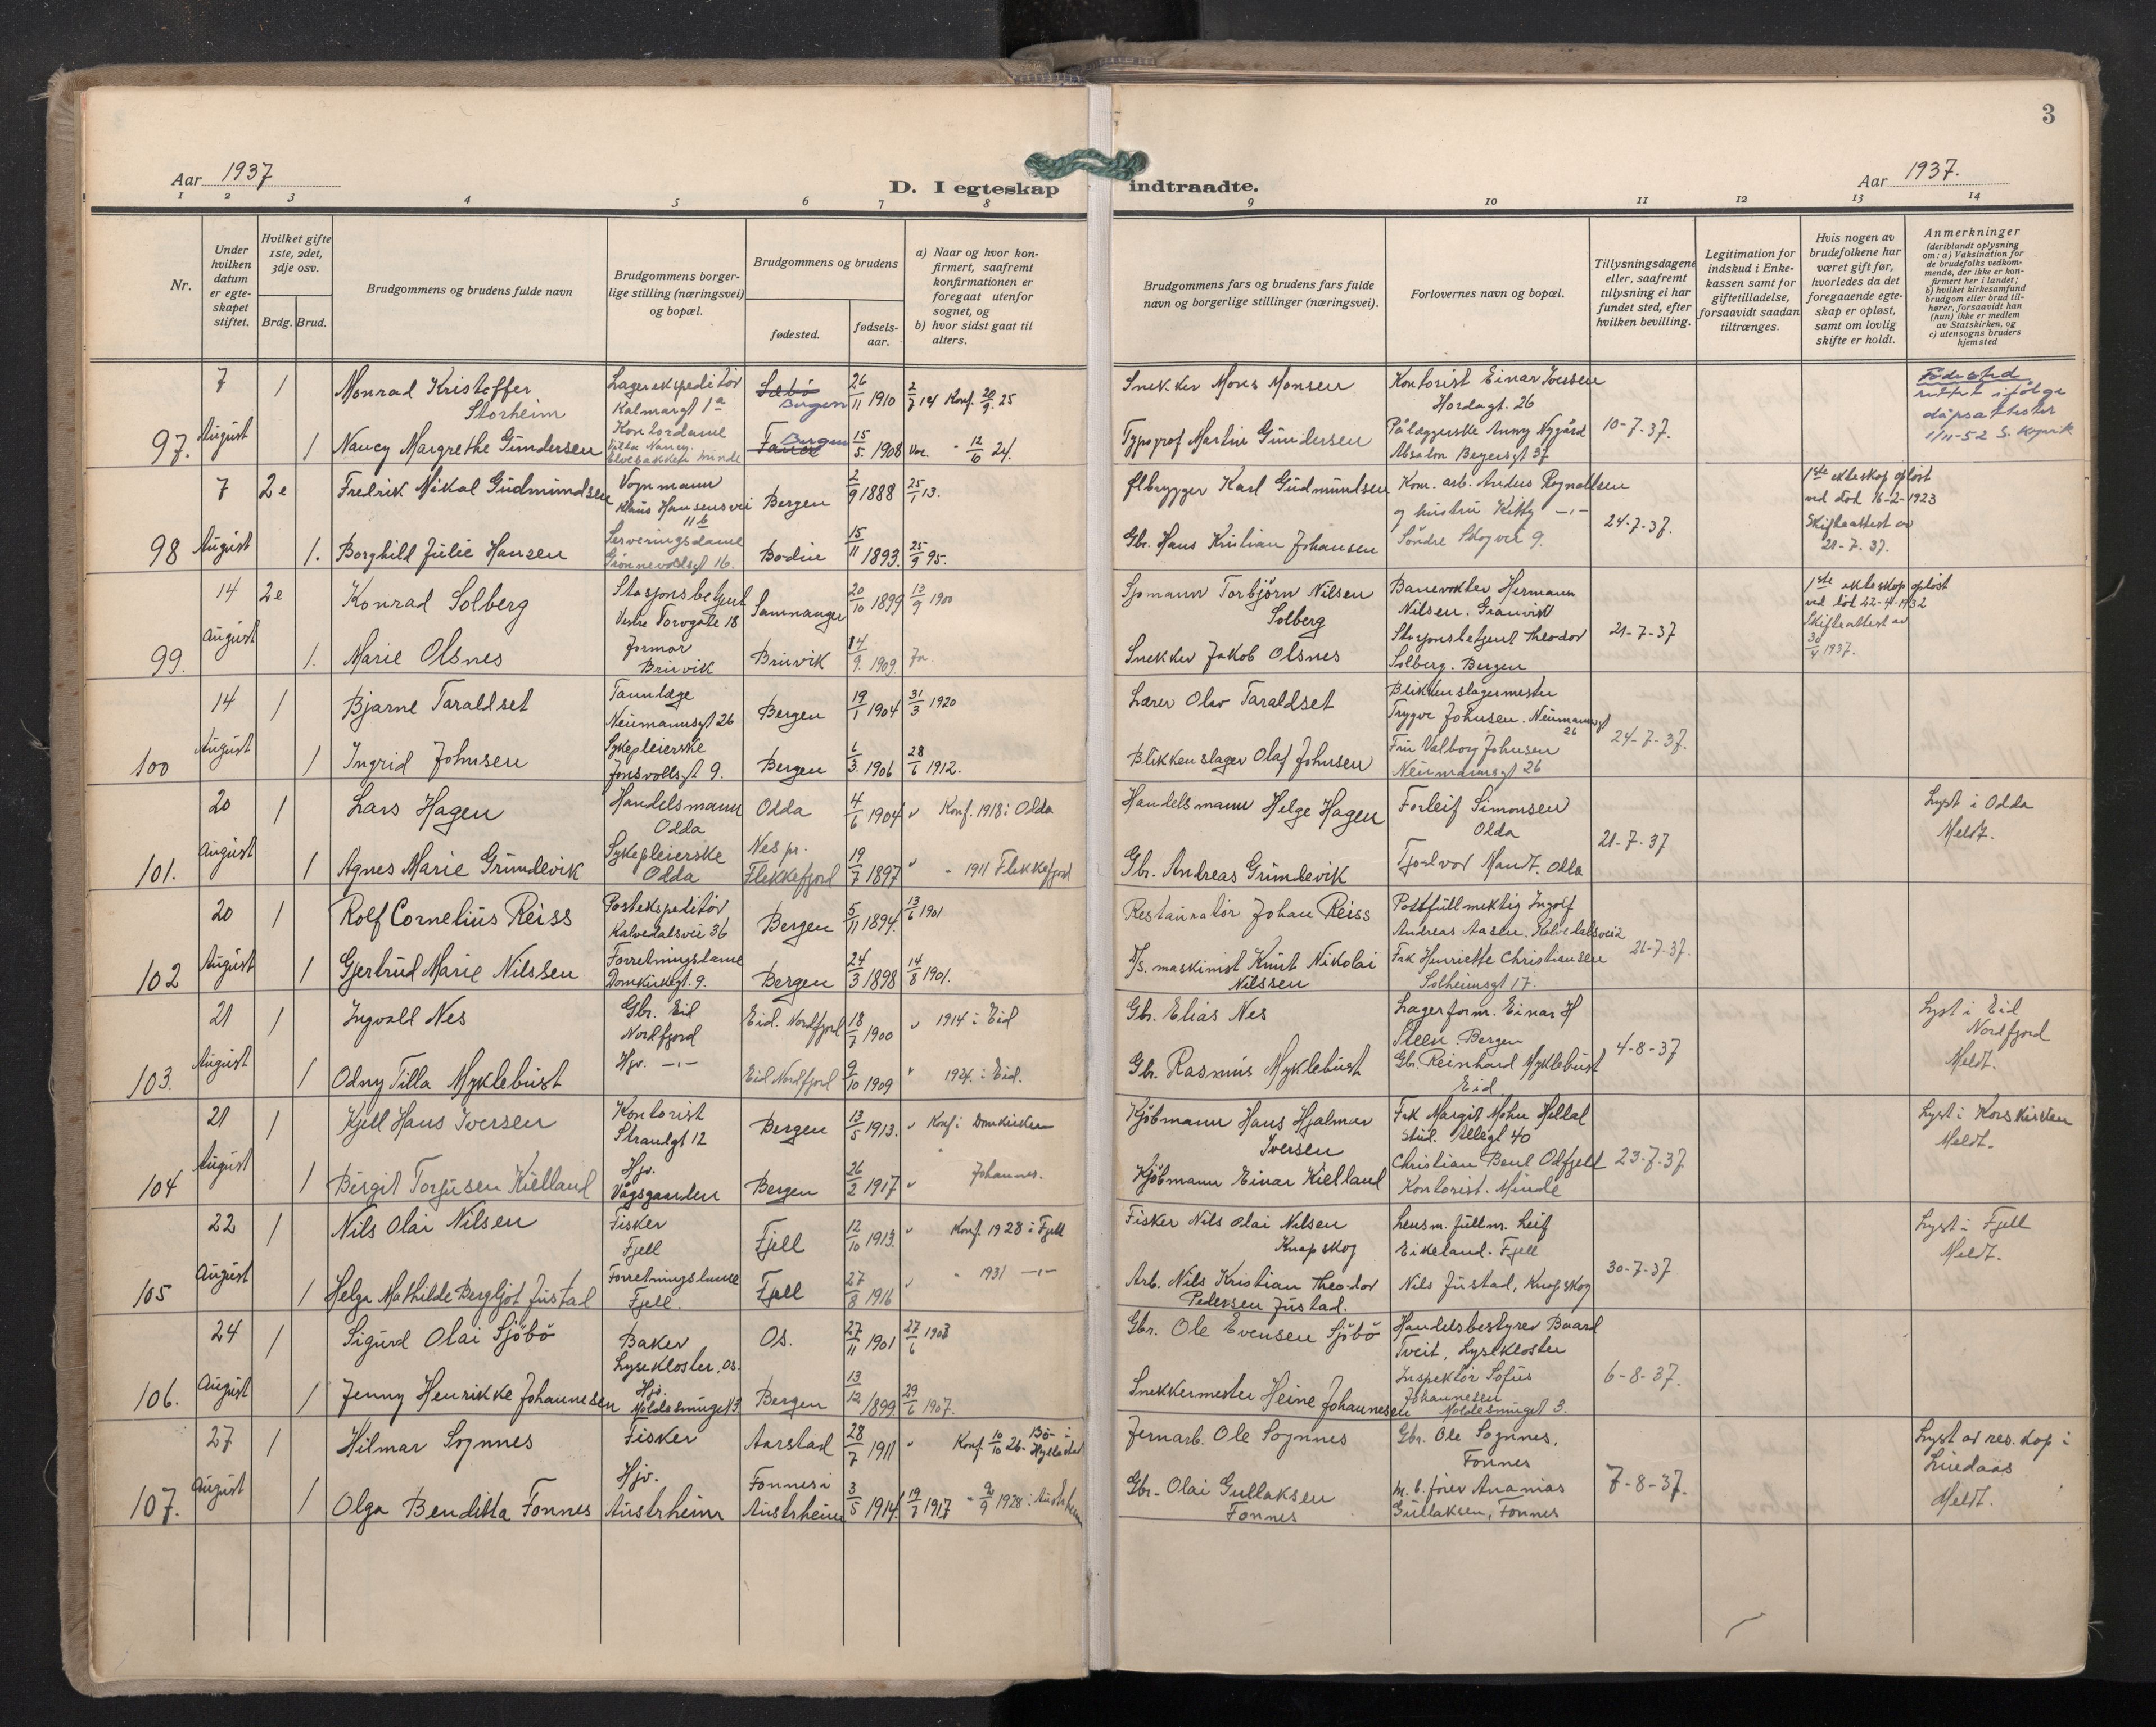 3
Aar 1937
D. I egteskap indtraadte.
Aar 1937.
1 2 3 4 5 6 7 8 9 10 11 12 13 14
Nr.
Under hvilken datum er egte-skapet stiftet.
Hvilket gifte 1ste, 2det, 3dje osv.
Brdg. Brud.
Brudgommens og brudens fulde navn
Brudgommens borger-lige stilling (næringsvei) og bopæl.
Brudgommens og brudens
fødested.
fødsels-aar.
a) Naar og hvor kon-firmert, saafremt konfirmationen er foregaat utenfor sognet, og
b) hvor sidst gaat til alters.
Brudgommens fars og brudens fars fulde navn og borgerlige stillinger (næringsvei).
Forlovernes navn og bopæl.
Tillysningsdagene eller, saafremt tillysning ei har fundet sted, efter hvilken bevilling.
Legitimation for indskud i Enke-kassen samt for giftetilladelse, forsaavidt saadan tiltrænges.
Hvis nogen av brudefolkene har været gift før, hvorledes da det foregaaende egte-skap er opløst, samt om lovlig skifte er holdt.
Anmerkninger
(deriblandt oplysning om: a) Vaksination for de brudefolks vedkom-mende, der ikke er kon-firmert her i landet; b) hvilket kirkesamfund brudgom eller brud til-hører, forsaavidt han (hun) ikke er medlem av Statskirken, og c) utensogns bruders hjemsted
97. 7 August
1 Monrad Kristoffer Storheim
Lagerekspeditør Kalmargt 1a
Bergen 26/11 1910 2/7 14 Konf. 20/9. 25
Snekker Mons Monsen
Kontorist Einar Iversen Hordagt. 26
Fødested rettet ifølge dåpsattester 1/11-52
1 Nancy Margrethe Gundersen
Kontordame Villa Nancy. Elvebakken Minde
Bergen 15/5. 1908 Vac. " 12/6 24.
Typograf Martin Gundersen
Pålæggerske Anny Nygård Absalon Beyersgt 37
10-7-37.
98 7 August
2e Fredrik Nikal Gudmundsen
Vognmann Klaus Hansensvei 11b
Bergen 2/9 1888 25/1 13.
Ølbrygger Karl Gudmundsen
Kom. arb. Anders Rognaldsen og hustru Kitty -"-
Søndre Skogvei 9.
24-7-37.
1ste ekteskap opløst ved død 16-2-1923 Skifteattest av 21-7-37.
1. Borghild Julie Hansen
Serveringsdame Grønnevoldsgt 16.
Bodin 15/11 1893. 25/9 95.
Gbr. Hans Kristian Johansen
99. 14 August
2e Konrad Solberg
Stasjonsbetjent Vestre Torvgate 18
Samnanger 20/10 1899 13/9 1900
Sjømann Torbjörn Nilsen Solberg
Banevokter Hermann Nilsen.
21-7-37
1ste ekteskap opløst ved død 22-4-1932 Skifteattest av 30/4 1937.
1. Marie Olsnes
Jormor Bruvik
Bruvik 14/9. 1909 Ja.
Snekker Jakob Olsnes
Stasjonsbetjent Theodor Solberg. Bergen
100 14 August
1 Bjarne Taraldset
Tannlæge Neumannsgt 26
Bergen 19/1 1904 31/3 1920
Lærer Olav Taraldset
Blikkenslagermester Trygve Johnsen. Neumannsgt 26
24-7-37.
1 Ingrid Johnsen
Sykepleierske Jonsvollsgt 9.
Bergen 6/3. 1906 28/6 1912.
Blikkenslager Olaf Johnsen
Fru Valborg Johnsen Neumannsgt 26
101. 20 August
1 Lars Hagen
Handelsmann Odda
Odda 4/6 1904 v Konf. 1918 i Odda
Handelsmann Helge Hagen
Torleif Simonsen Odda
21-7-37
Lyst i Odda Meldt.
1 Agnes Marie Grundevik
Sykepleierske Odda
Nes pr. Flekkefjord 19/7 1897 " " 1911 Flekkefjord
Gbr. Andreas Grundevik
Tjodvor Mandt. Odda
102 20 August
1 Rolf Cornelius Reiss
Postekspeditør Kalvedalsvei 36
Bergen 5/11 1894. 13/6 1901
Restauratør Johan Reiss
Postfullmektig Ingolf Andreas Aasen. Kalvedalsvei 2
21-7-37.
1 Gjertrud Marie Nilssen
Forretningsdame Domkirkegt. 9.
Bergen 24/3 1898 14/8 1901.
D/s. maskinist Knut Nikolai Nilssen
Frk Henriette Christiansen Solheimsgt 17.
103. 21 August
1 Ingvald Nes
Gbr. Eid Nordfjord
Eid. Nordfjord 18/7 1900 v 1914 i Eid
Gbr. Elias Nes
Lagerform. Einar H Steen. Bergen
4-8-37
Lyst i Eid Nordfjord Meldt.
1 Odny Tilla Myklebust
Hjv. -"-
Eid Nordfjord 9/10 1909 " 1924 i Eid.
Gbr. Rasmus Myklebust
Gbr. Reinhard Myklebust Eid
104 21 August
1 Kjell Hans Iversen
Kontorist Strandgt 12
Bergen 13/5 1913. v Konf i Domkirken
Kjøbmann Hans Hjalmar Iversen
Frk Margit Mohn Helland Stud. Allegt 40
23-7-37
Lyst i Korskirken Meldt.
1 Bergit Torjusen Kielland
Hjv. Vågsgaarden
Bergen 26/2 1917 v " Johannes.
Kjøbmann Einar Kielland
Christian Bent Odfjell Kontorist. Minde
105 22 August
1 Nils Olai Nilsen
Fisker Fjell
Fjell 12/10 1913. v Konf. 1928 i Fjell
Fisker Nils Olai Nilsen Knapskog
Lensm. fullm. Leif Eikeland. Fjell
30-7-37
Lyst i Fjell Meldt.
1 Helga Mathilde Bergljot Justad
Forretningsdame Fjell.
Fjell 27/8 1916 v " 1931 -"-
Arb. Nils Kristian Theodor Pedersen Justad.
Nils Justad, Knapskog
106. 24 August
1 Sigurd Olai Sjöbö
Baker Lysekloster, Os.
Os. 27/11 1901 27/6 1903
Gbr. Ole Evensen Sjöbö
Handelsbestyrer Baard Tveit, Lysekloster
6-8-37.
1 Jenny Henrikke Johannesen
Hjv. Moldesmuget 3.
Bergen 13/12 1899 29/6 1907.
Snekkermester Heine Johannesen
Inspektør Sofus Johannesen Moldesmuget 3.
107. 27 August
1 Hilmar Sognnes
Fisker
Aarstad 28/7 1911 v Konf 10/10 26. Bö i Hyllestad
Jernarb. Ole Sognnes
Gbr. Ole Sognnes, Fonnes
7-8-37.
Lyst av res. kap i Lindaas Meldt.
1 Olga Benditta Fonnes
Hjv. Austrheim
Fonnes i Austrheim 3/5 1914. 19/7 1917 " 9/9 1928 i Austrheim
Gbr. Olai Gullaksen Fonnes
M. b. fører Ananias Gullaksen, Fonnes